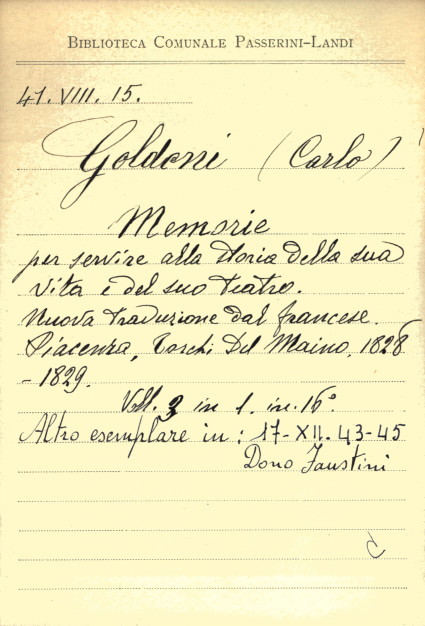 BIBLIOTECA COMUNALE PASSERINI-LANDI
41.VIII.15.
Goldoni (Carlo)
Memorie
per servire alla storia della sua
vita e del suo teatro.
Nuova traduzione dal francese.
Piacenza, Torchi Del Maino, 1828
-1829.
Voll. 3 in 1. in-16°
Altro esemplare in: 17-XII. 43-45
Dono Faustini
C